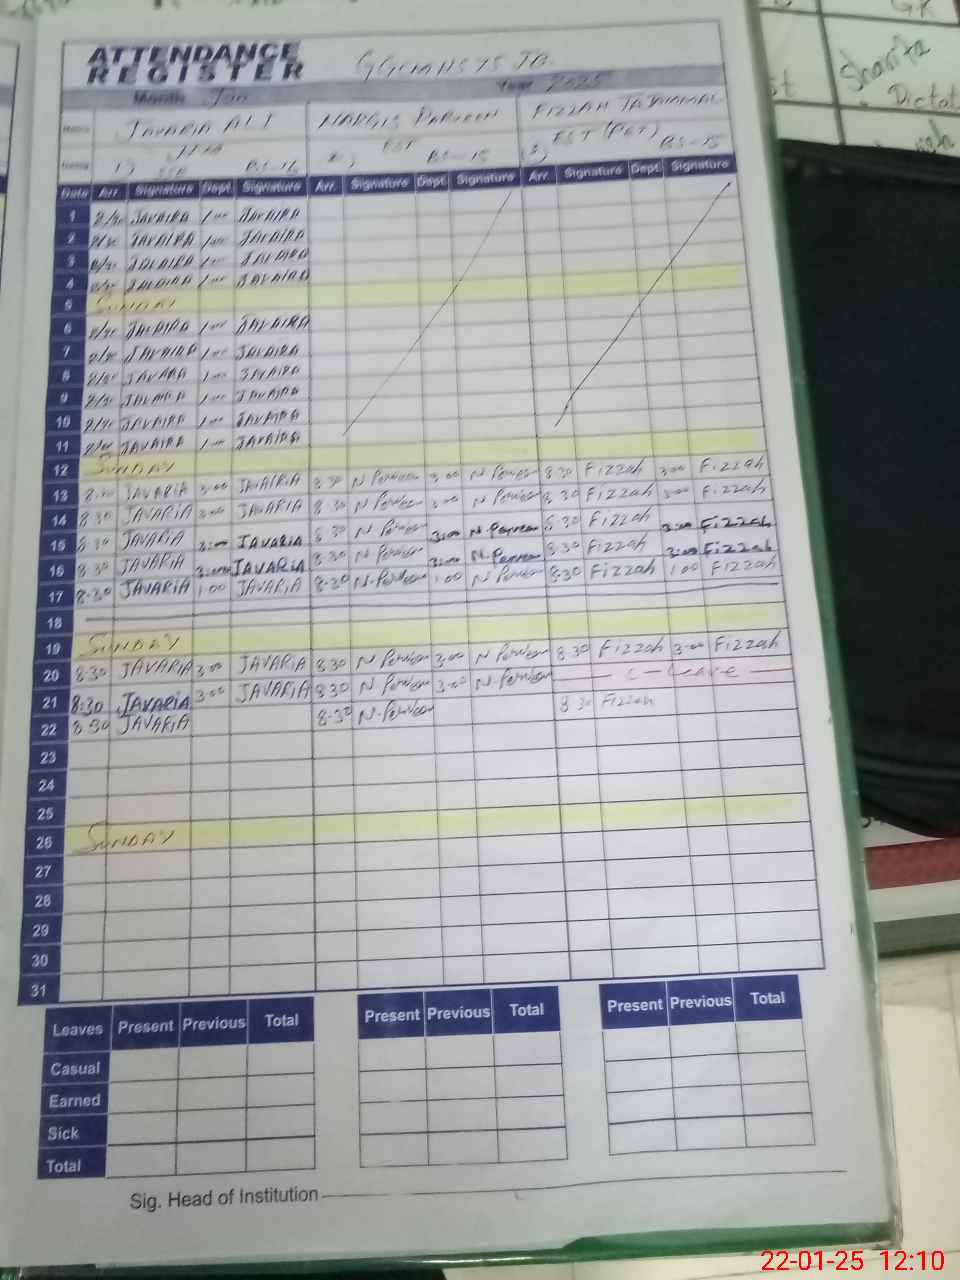 ATTENDANCE
REGISTER
Month Jan Year 2025
Name JAVARIA ALI NARGIS PARVEEN FIZZAH TAJAMMAL
1) SSE BS-16 2) EST BS-15 (3) EST (PET) BS-15
Date Arr. Signature Dept. Signature Arr. Signature Dept. Signature Arr. Signature Dept. Signature
1 8/30 JAVAIRA 1:00 JAVAIRA
2 8/30 JAVAIRA 1:00 JAVAIRA
3 8/30 JAVAIRA 1:00 JAVAIRA
4 8/30 JAVAIRA 1:00 JAVAIRA
5 SUNDAY
6 8/30 JAVAIRA 1:00 JAVAIRA
7 8/30 JAVAIRA 1:00 JAVAIRA
8 8/30 JAVARA 1:00 JAVAIRA
9 8/30 JAVAIRA 1:00 JAVAIRA
10 8/30 JAVAIRA 1:00 JAVAIRA
11 8/30 JAVAIRA 1:00 JAVAIRA
12 SUNDAY
13 8:30 JAVARIA 3:00 JAVAIRIA 8:30 N Perveen 3:00 N Perveen 8:30 Fizzah 3:00 Fizzah
14 8:30 JAVARIA 3:00 JAVARIA 8:30 N Perveen 3:00 N Perveen 8:30 Fizzah 3:00 Fizzah
15 8:30 JAVARIA 3:00 JAVARIA 8:30 N Perveen 3:00 N.Perveen 8:30 Fizzah 3:00 Fizzah
16 8:30 JAVARIA 3:00 JAVARIA 8:30 N Perveen 3:00 N.Perveen 8:30 Fizzah 3:00 Fizzah
17 8:30 JAVARIA 1:00 JAVARIA 8:30 N.Perveen 1:00 N Perveen 8:30 Fizzah 1:00 Fizzah
18
19 SUNDAY
20 8:30 JAVARIA 3:00 JAVARIA 8:30 N Perveen 3:00 N Perveen 8:30 Fizzah 3:00 Fizzah
21 8:30 JAVARIA 3:00 JAVARIA 8:30 N Perveen 3:00 N.Perveen C-Leave
22 8:30 JAVARIA 8:30 N.Perveen 8:30 Fizzah
23
24
25
26 SUNDAY
27
28
29
30
31
Leaves Present Previous Total Present Previous Total Present Previous Total
Casual
Earned
Sick
Total
Sig. Head of Institution
22-01-25 12:10